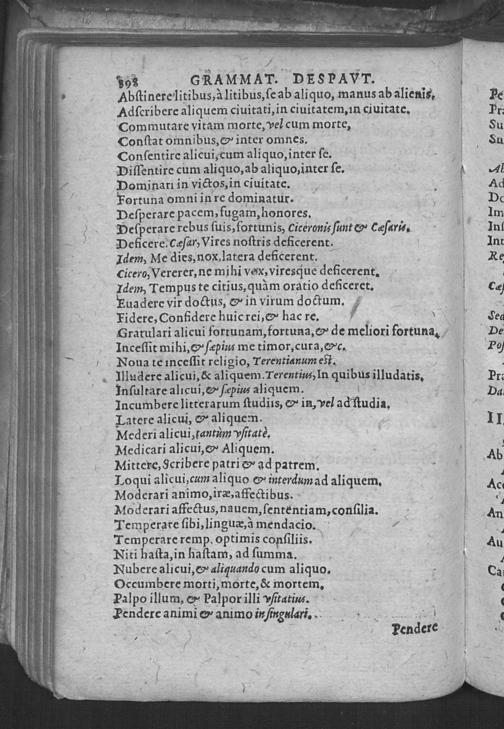 898 GRAMMAT. DESPAVT.
Abstinere litibus, à litibus, se ab aliquo, manus ab alienis.
Adscribere aliquem ciuitati, in ciuitatem, in ciuitate.
Commutare vitam morte, vel cum morte.
Constat omnibus, & inter omnes.
Consentire alicui, cum aliquo, inter se.
Dissentire cum aliquo, ab aliquo, inter se.
Dominari in victos, in ciuitate.
Fortuna omni in re dominatur.
Desperare pacem, fugam, honores.
Desperare rebus suis, fortunis, Ciceronis sunt & Cæsaris.
Deficere. Cæsar, Vires nostris deficerent.
Idem, Me dies, nox, latera deficerent.
Cicero, Vererer, ne mihi vox, viresque deficerent.
Idem, Tempus te citius, quàm oratio deficeret.
Euadere vir doctus, & in virum doctum.
Fidere, Confidere huic rei, & hac re.
Gratulari alicui fortunam, fortuna, & de meliori fortuna.
Incessit mihi, & sæpius me timor, cura, &c.
Noua te incessit religio, Terentianum est.
Illudere alicui, & aliquem. Terentius, In quibus illudatis.
Insultare alicui, & sæpius aliquem.
Incumbere litterarum studiis, & in, vel ad studia.
Latere alicui, & aliquem.
Mederi alicui, tantùm vsitatè.
Medicari alicui, & Aliquem.
Mittere, Scribere patri & ad patrem.
Loqui alicui, cum aliquo & interdum ad aliquem.
Moderari animo, iræ, affectibus.
Moderari affectus, nauem, sententiam, consilia.
Temperare sibi, linguæ, à mendacio.
Temperare remp. optimis consiliis.
Niti hasta, in hastam, ad summa.
Nubere alicui, & aliquando cum aliquo.
Occumbere morti, morte, & mortem.
Palpo illum, & Palpor illi vsitatius.
Pendere animi & animo in singulari.
Pendere